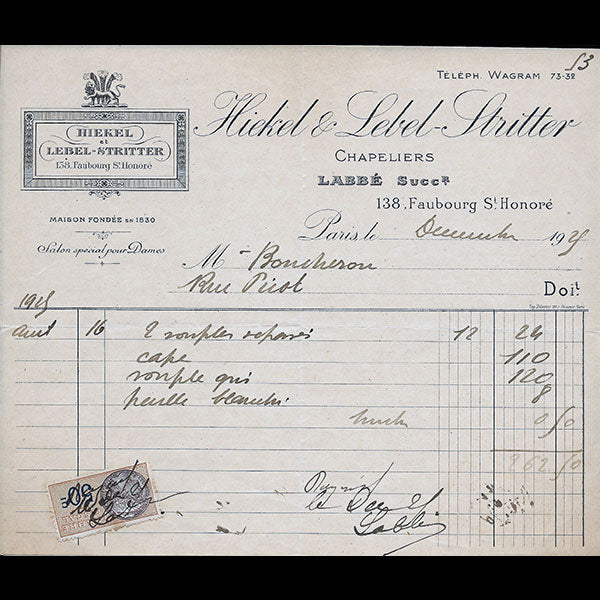 53
TÉLÉPH. WAGRAM 73-32
HIEKEL
et
LEBEL-STRITTER
138, Faubourg St Honoré
Hiekel & Lebel-Stritter
CHAPELIERS
LABBÉ Succr
138, Faubourg St Honoré
MAISON FONDÉE EN 1830
Salon spécial pour Dames
Paris, le Décembre 1925
M Boucheron
Rue Picot
Doit
1925
Avril 16 2 souples repassés 12 24
cape 110
souple gris 120
paille blanchi 8
timbre 0 50
262 50